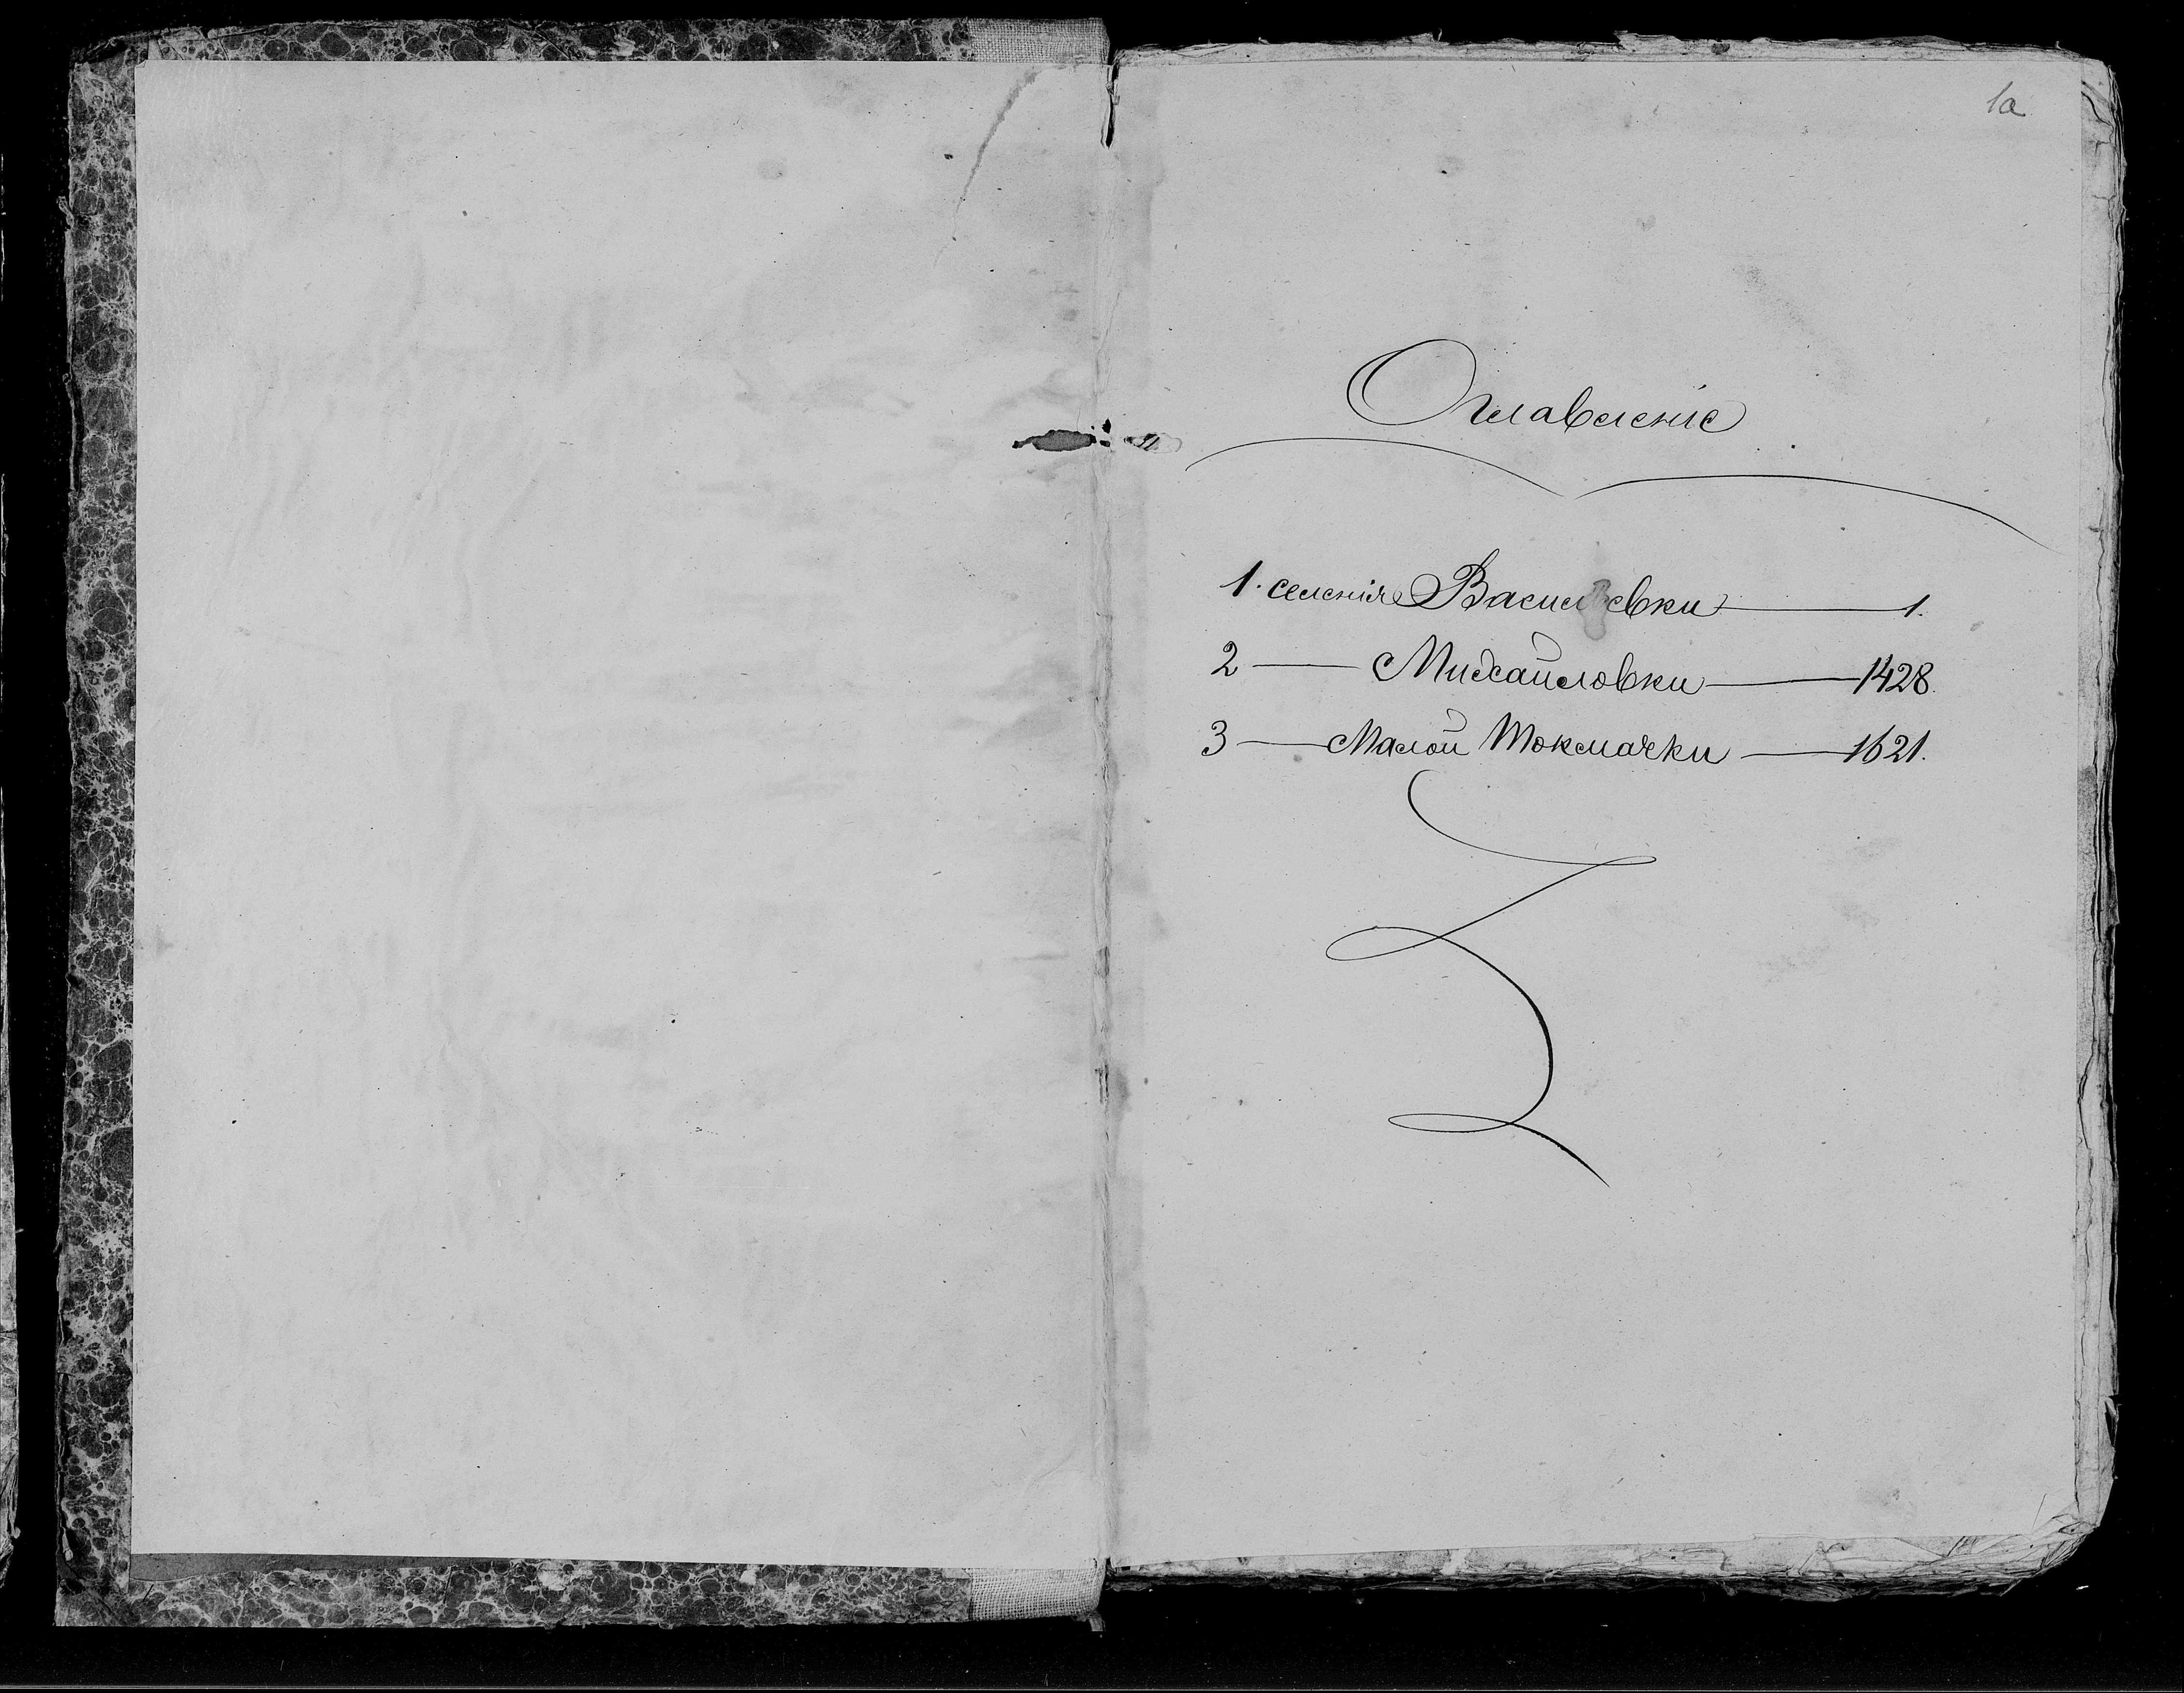 1а
Оглавленіе
1. селенія Васильевки — 1.
2 — Михайловки — 1428.
3 — Малой Токмачки — 1621.